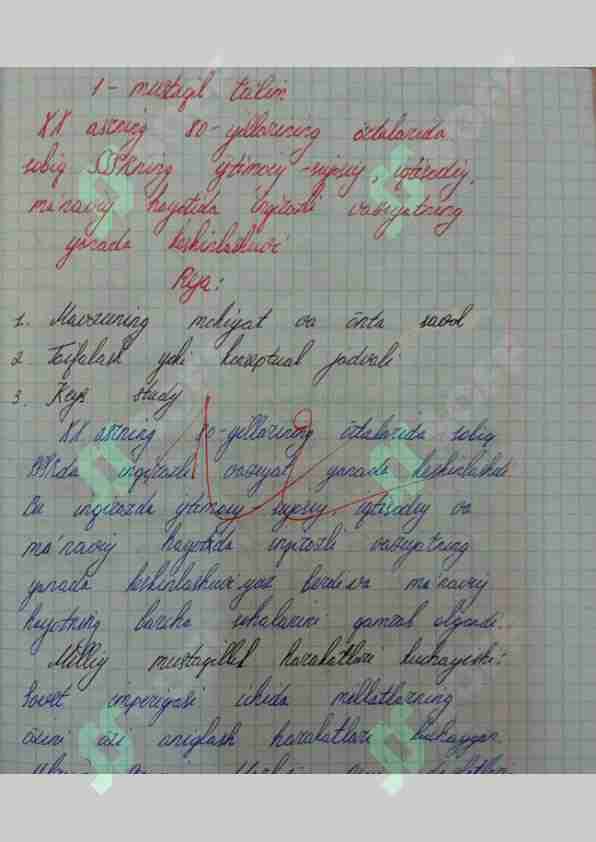 1 - mustaqil ta'lim
XX asrning 80-yillarining o'rtalarida
sobiq SSSRning ijtimoiy-siyosiy, iqtisodiy,
ma'naviy hayotida inqirozli vaziyatning
yanada keskinlashuvi
Reja:
1. Mavzuning mohiyat va o'nta savol
2. Toifalash yoki konseptual jadvali
3. Keys study
XX asrning 80-yillarining o'rtalarida sobiq
SSSRda inqirozli vaziyat yanada keskinlashdi.
Bu inqirozda ijtimoiy siyosiy, iqtisodiy va
ma'naviy hayotida inqirozli vaziyatning
yanada keskinlashuvi yuz berdi va ma'naviy
hayotning barcha sohalarini qamrab olgandi.
Milliy mustaqillik harakatlari kuchayishi:
Sovet imperiyasi ichida millatlarning
o'zini o'zi aniqlash harakatlari kuchaygan.